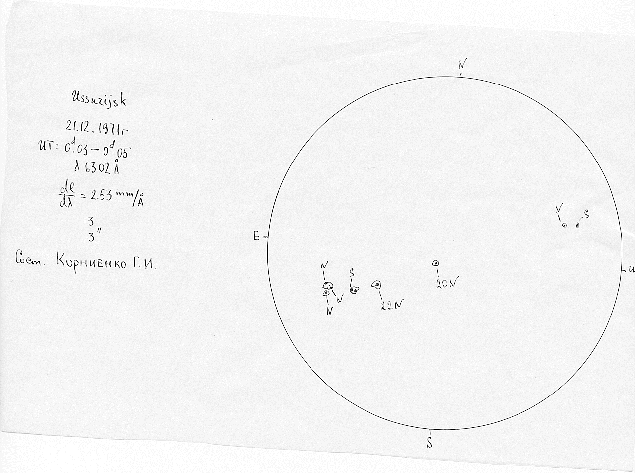 Ussurijsk
21.12.1971г.
UT: 0ᵈ.03 – 0ᵈ.05
λ 6302 Å
dl/dλ = 2.53 mm/Å
3
3"
Сост. Корниенко Г.И.
N
N S
E
W
N S
N
N
22N
20N
S